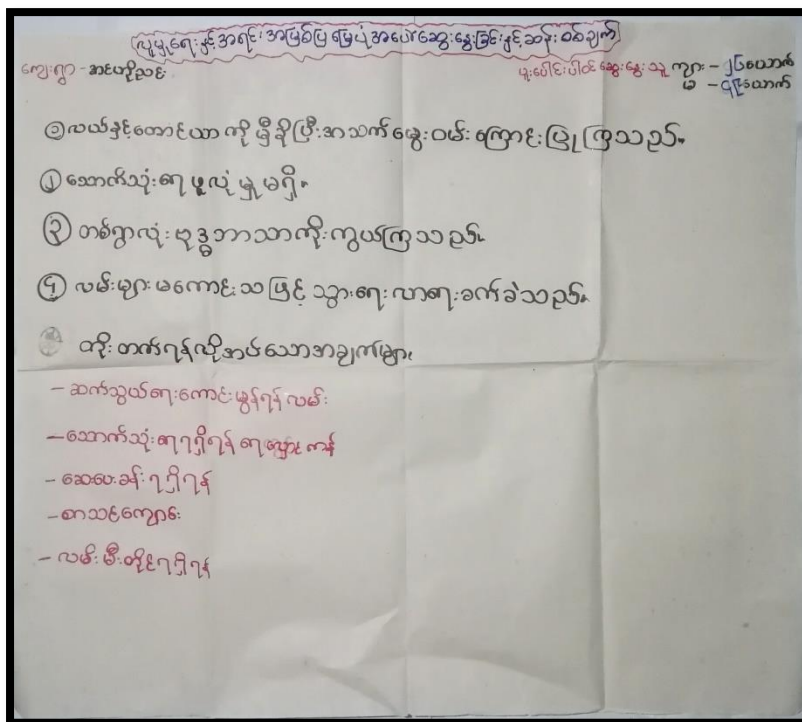 လူမှုရေးနှင့်အရင်းအမြစ်ပြမြေပုံအပေါ်ဆွေးနွေးခြင်းနှင့်ဆန်းစစ်ချက်
ကျေးရွာ - ဆင်တိုညင်း
ပူးပေါင်းပါဝင်ဆွေးနွေးသူ ကျား - ၂၆ယောက်
မ - ၎င်းယောက်
၁ လယ်နှင့်တောင်ယာကိုမှီခိုပြီးအသက်မွေးဝမ်းကြောင်းပြုကြသည်။
၂ သောက်သုံးရေဖူလုံမှုမရှိ။
၃ တစ်ရွာလုံးဗုဒ္ဓဘာသာကိုးကွယ်ကြသည်။
၄ လမ်းများမကောင်းသဖြင့်သွားရေးလာရေးခက်ခဲသည်။
တိုးတက်ရန်လိုအပ်သောအချက်များ
- ဆက်သွယ်ရေးကောင်းမွန်ရန်လမ်း
- သောက်သုံးရေရရှိရန်ရေလှောင်ကန်
- ဆေးပေးခန်းရရှိရန်
- စာသင်ကျောင်း
- လမ်းမီးတိုင်ရရှိရန်